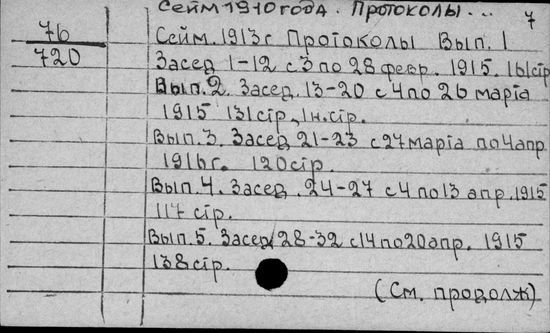 Сейм 1910 года. Протоколы... 7
76
720
Сейм. 1913 г Протоколы Вып. 1
Засед 1-12 с 3 по 28 февр. 1915. 161стр
Вып. 2. Засед. 13-20 с 4 по 26 марта
1915 131стр, 1н.стр.
Вып. 3. Засед 21-23 с 27 марта по 4апр.
1916г. 120стр.
Вып. 4. Засед. 24-27 с 4 по 13 апр. 1915
117 стр.
Вып. 5. Засед 28-32 с 14 по 20 апр. 1915
138 стр.
(См. продолж)